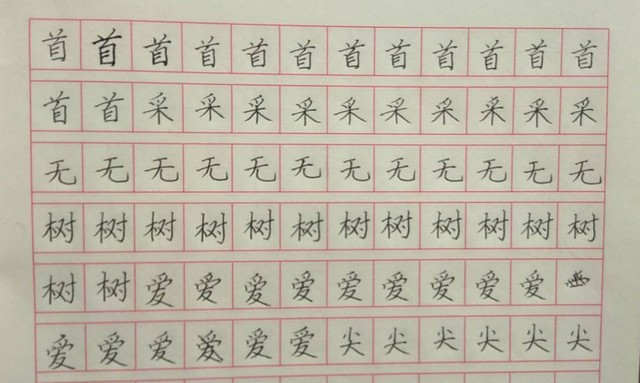 首首首首首首首首首首首首
首首采采采采采采采采采采
无无无无无无无无无无无无
树树树树树树树树树树树树
树树爱爱爱爱爱爱爱爱爱
爱爱爱爱爱爱尖尖尖尖尖尖